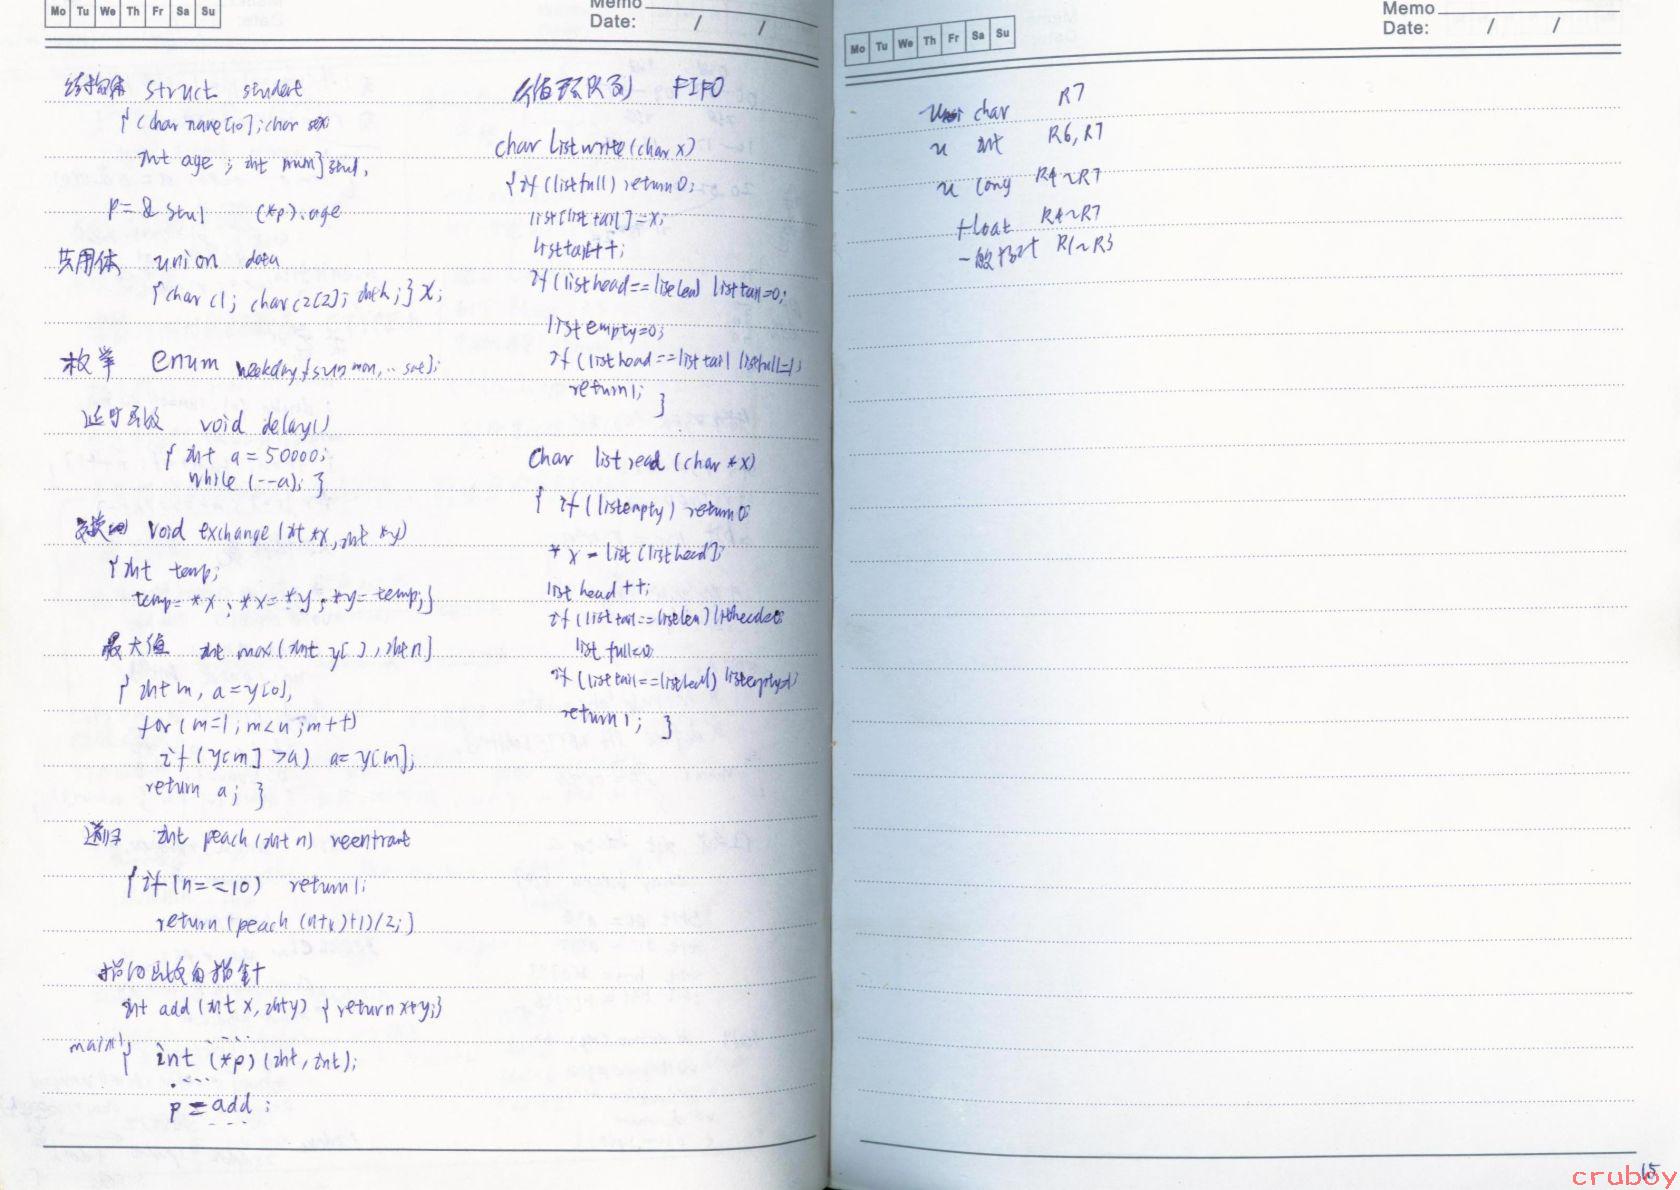 Mo Tu We Th Fr Sa Su
Memo
Date: / /
结构体 struct student
{ (char name[10]; char sex
int age ; int num} stu1,
p=& stu1 (*p).age
共用体 union data
{char c1; char c2[2]; int h;} x;
枚举 enum weekday{sun mon, .. sat};
延时函数 void delay()
{ int a=50000;
while (--a); }
交换 void exchange (int *x, int *y)
{int temp;
temp= *x ; *x= *y ; *y= temp;}
最大值 int max(int y[ ], int n]
{ int m, a=y[0],
for (m=1; m<n ;m++)
if (y[m] >a) a= y[m];
return a; }
递归 int peach(int n) reentrant
{if (n==10) return 1;
return (peach (n+1)+1)/2; }
指向函数的指针
int add (int x, int y) { return x+y;}
main() { int (*p) (int, int);
p = add ;
循环队列 FIFO
char listwrite (char x)
{if (listfull) return 0;
list[listtail]=x;
listtail++;
if (listhead==listlen) listtail=0;
listempty=0;
if (listhead==listtail listfull=1;
return 1; }
char listread (char *x)
{ if (listempty) return 0
*x = list [listhead];
listhead ++;
if (listtail==listlen) listhead=0;
listfull=0
if (listtail==listhead) listempty=1
return 1; }
Mo Tu We Th Fr Sa Su
Memo
Date: / /
char R7
u int R6, R7
u long R4~R7
float R4~R7
一般指针 R1~R3
15
cruboy